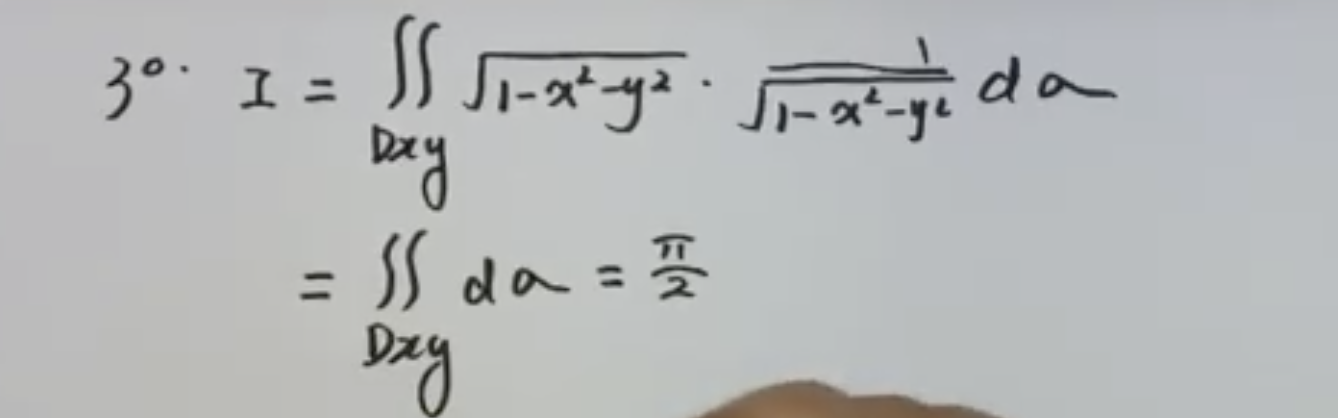 3°. I = ∬_{Dxy} √(1-x²-y²) · 1/√(1-x²-y²) dσ
= ∬_{Dxy} dσ = π/2